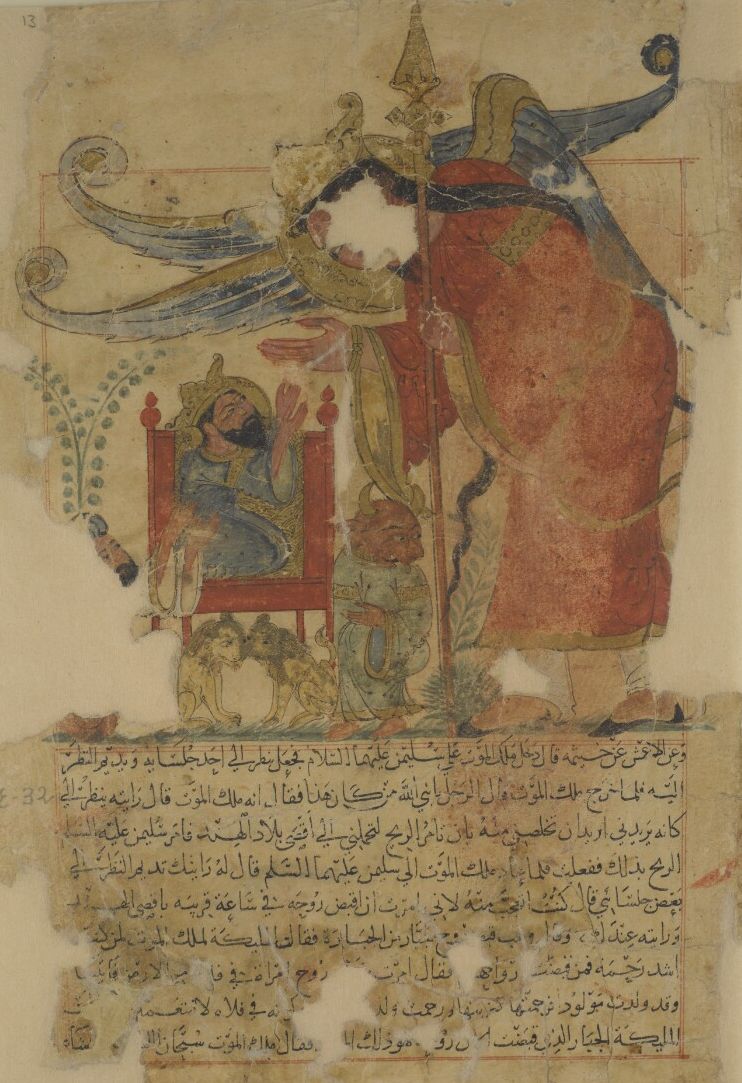 13
وعن الاعمش عن خيثمه قال دخل ملك الموت على سليمن عليهما السلام فجعل ينظر الى احد جلسايه ويديم النظر
اليه فلما خرج ملك الموت قال الرجل يا نبي الله من كان هذا فقال انه ملك الموت قال رايته ينظر الي
كانه يريدني اريد ان تخلصني منه بان تامر الريح لتحملني الى أقصى بلاد الهند فامر سليمن عليه
32
الريح بذلك ففعلت فلما عاد ملك الموت الى سليمن عليهما السلم قال له رايتك تديم النظر الى
بعض جلسائي قال كنت اتعجب منه لاني امرت ان اقبض روحه في ساعة قريبه باقصى الهند
ورايته عندك وقال وهب قبض روح جبار من الجبابرة فقالت المليكة لملك الموت لمن كنت
اشد رحمه فمن قبضت فقال امرت روح امراة في فلاة من الارض
وقد ولدت مولود فرحمتها ورحمت في فلاه لا
المليكة الجبار الذي قبضت روحه هو ذلك فقال ملك الموت سبحان